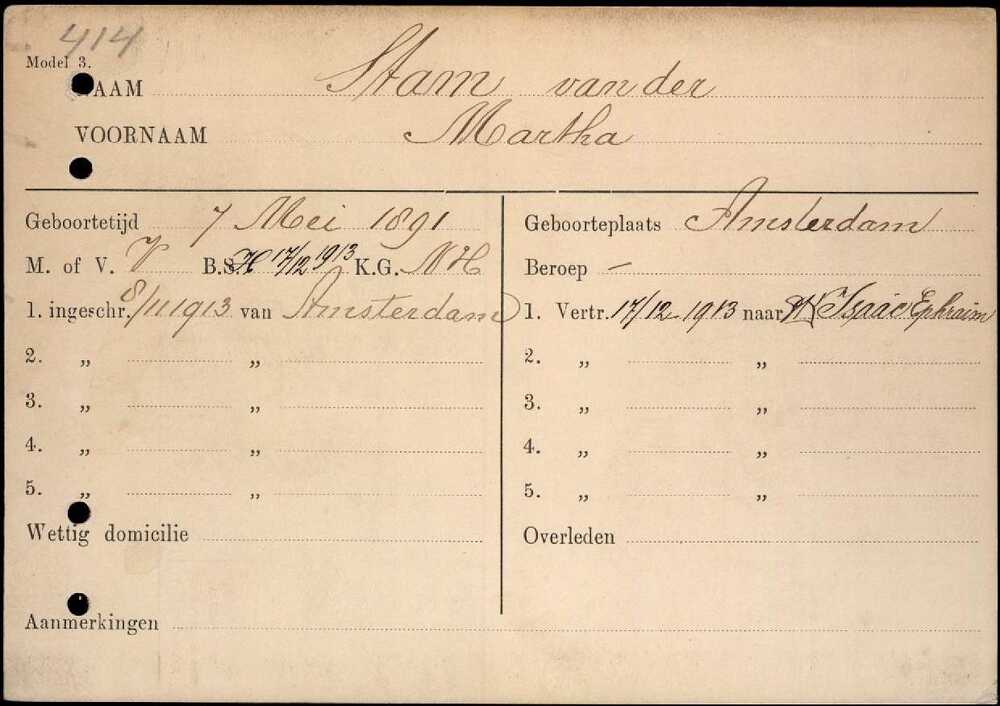 414
Model 3.
NAAM Stam van der
VOORNAAM Martha
Geboortetijd 7 Mei 1891
M. of V. V B.S. H 17/12 1913 K.G. NH
1. ingeschr. 8/11 1913 van Amsterdam
2. „ „
3. „ „
4. „ „
5. „ „
Wettig domicilie
Geboorteplaats Amsterdam
Beroep –
1. Vertr. 17/12 1913 naar Isaac Ephraim
2. „ „
3. „ „
4. „ „
5. „ „
Overleden
Aanmerkingen